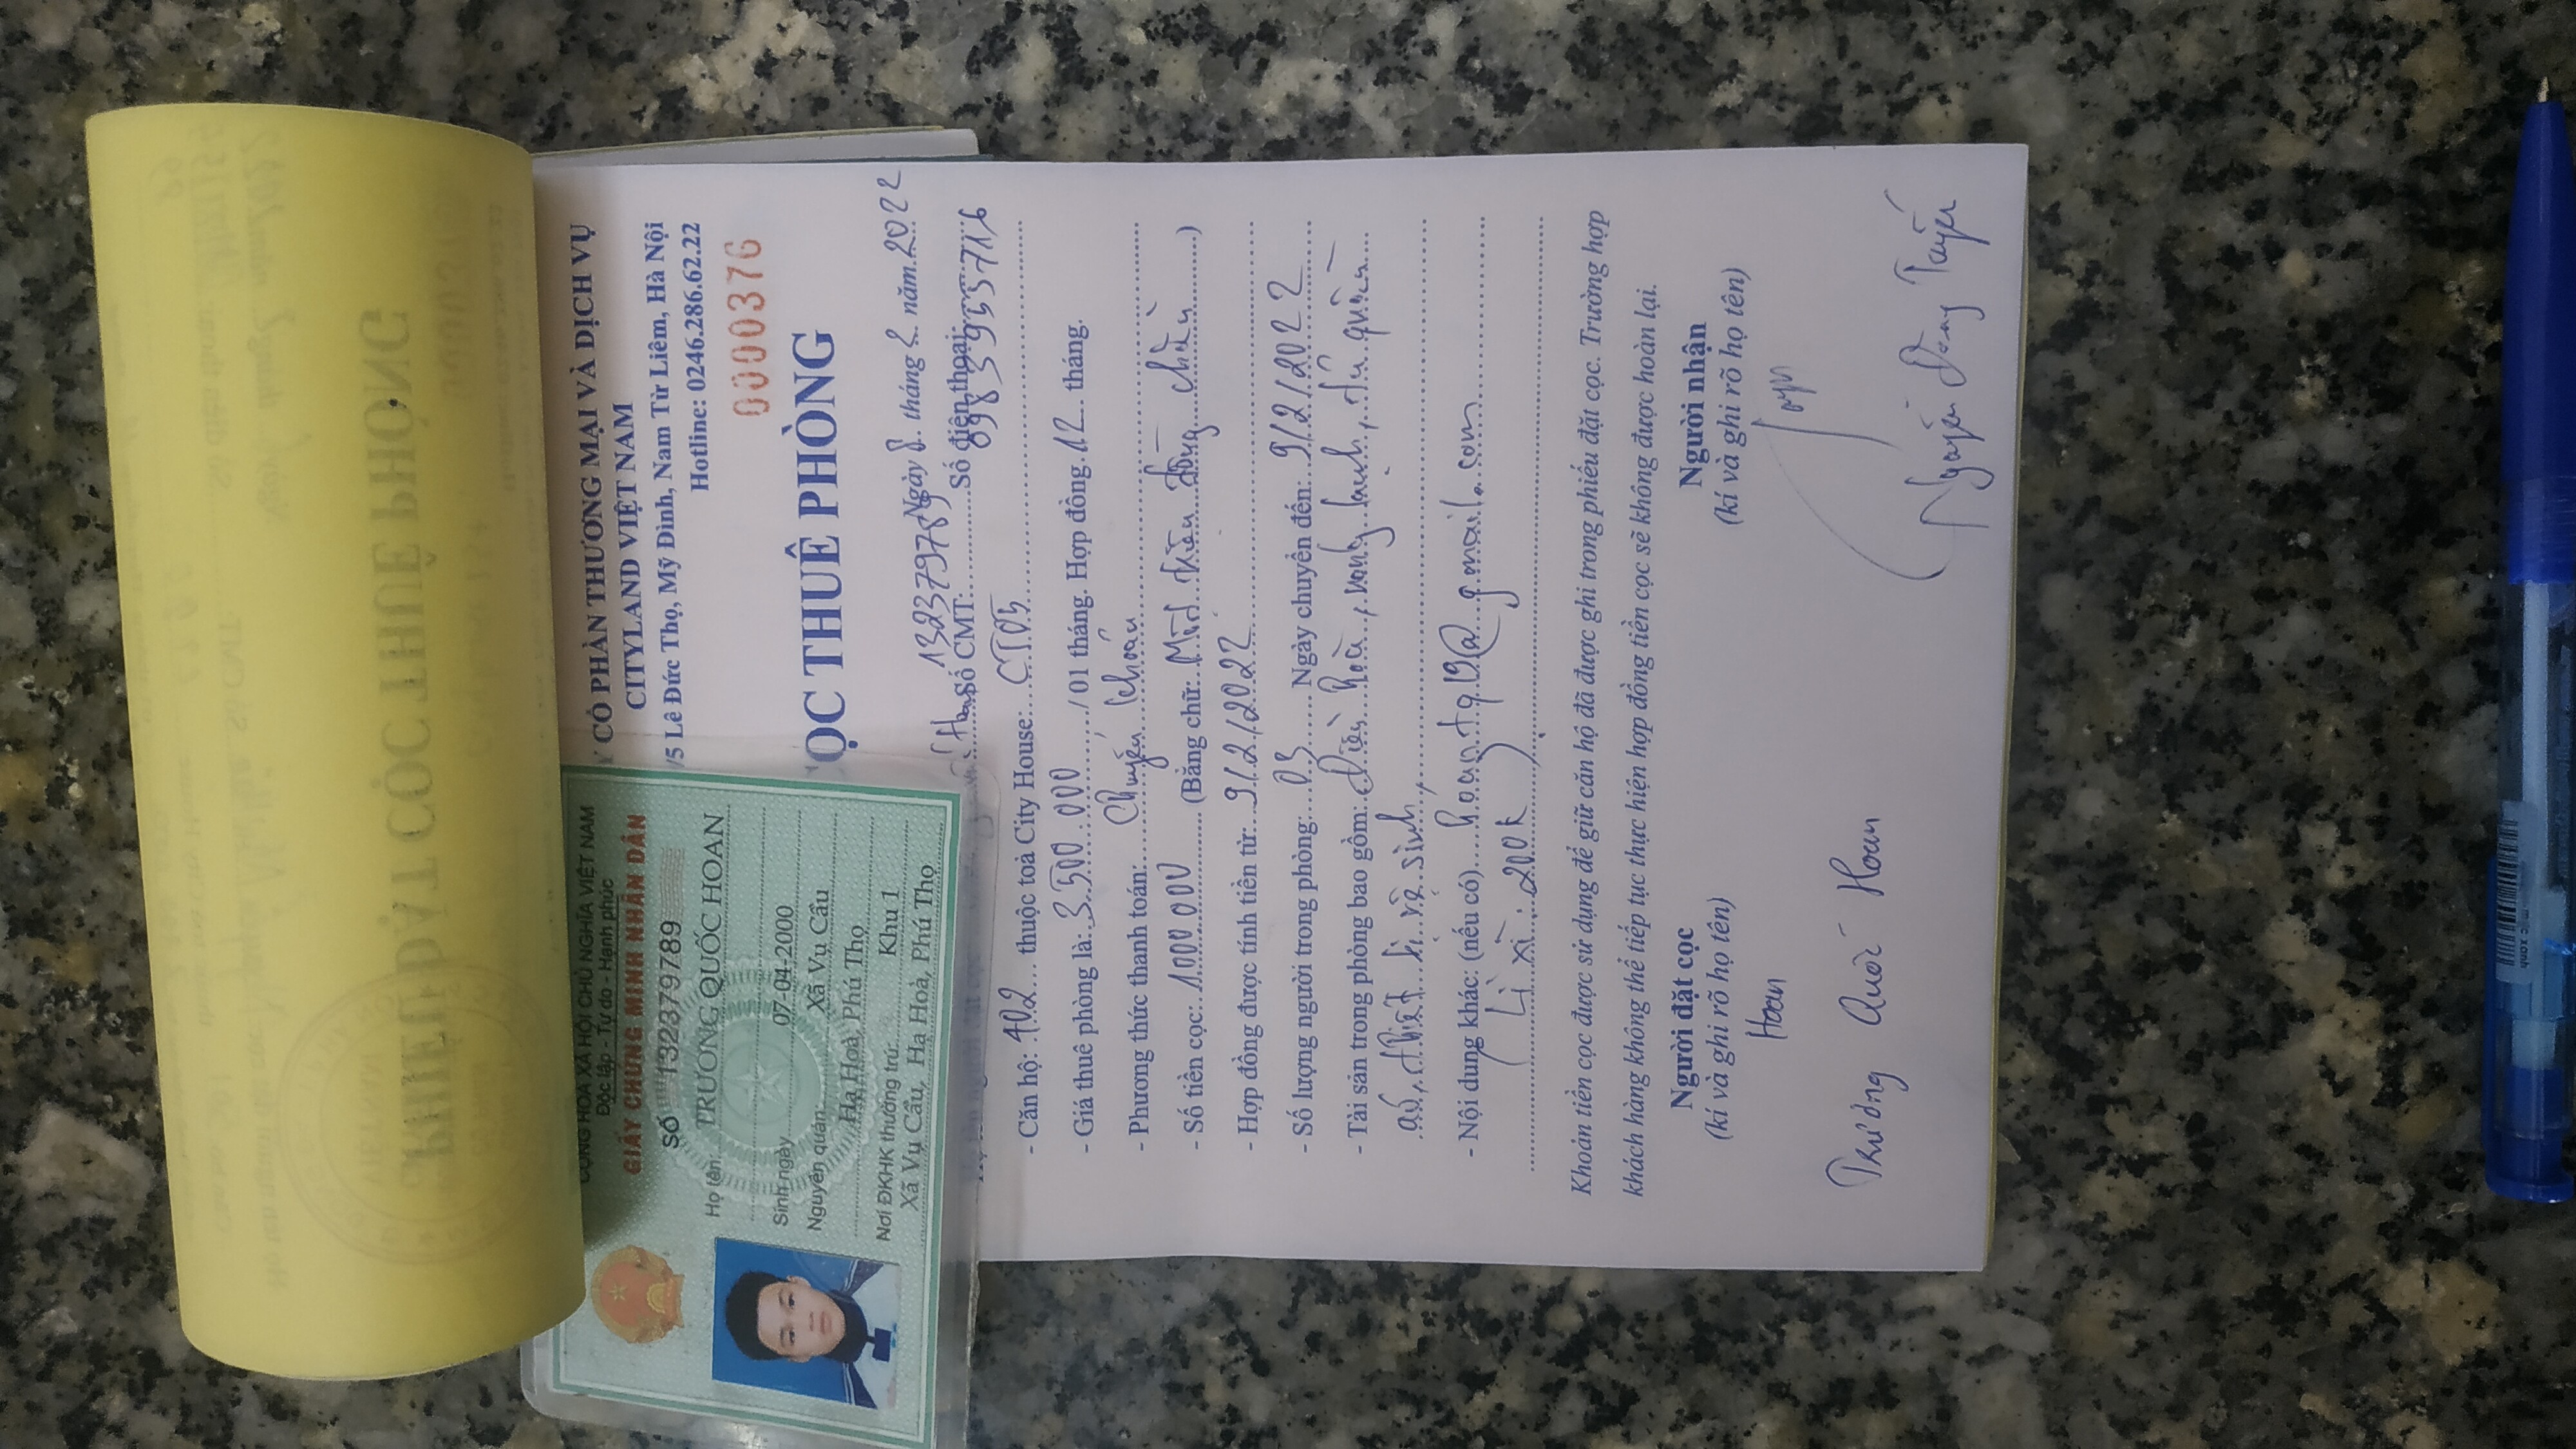 CỔ PHẦN THƯƠNG MẠI VÀ DỊCH VỤ
CITYLAND VIỆT NAM
/5 Lê Đức Thọ, Mỹ Đình, Nam Từ Liêm, Hà Nội
Hotline: 0246.286.62.22
0000376
ỌC THUÊ PHÒNG
Ngày 8 tháng 2 năm 2022
132379789
Số CMT: Số điện thoại:
- Căn hộ: 402 thuộc toà City House: CT05
- Giá thuê phòng là: 3 500 000 / 01 tháng. Hợp đồng 12 tháng.
- Phương thức thanh toán: Chuyển khoản
- Số tiền cọc: 1000 000 (Bằng chữ: Một triệu đồng chẵn )
- Hợp đồng được tính tiền từ: 9/2/2022
- Số lượng người trong phòng: 03 Ngày chuyển đến: 9/2/2022
- Tài sản trong phòng bao gồm: Điều hoà, nóng lạnh, tủ quần
áo, thiết bị vệ sinh,
- Nội dung khác: (nếu có) @gmail.com
( Lì xì : 200k )
Khoản tiền cọc được sử dụng để giữ căn hộ đã được ghi trong phiếu đặt cọc. Trường hợp
khách hàng không thể tiếp tục thực hiện hợp đồng tiền cọc sẽ không được hoàn lại.
Người đặt cọc
(kí và ghi rõ họ tên)
Hoan
Trương Quốc Hoan
Người nhận
(kí và ghi rõ họ tên)
Nguyễn Đăng Tuyến
CỘNG HOÀ XÃ HỘI CHỦ NGHĨA VIỆT NAM
Độc lập - Tự do - Hạnh phúc
GIẤY CHỨNG MINH NHÂN DÂN
SỐ 132379789
Họ tên TRƯƠNG QUỐC HOAN
Sinh ngày 07-04-2000
Nguyên quán Xã Vụ Cầu
Hạ Hoà, Phú Thọ
Nơi ĐKHK thường trú: Khu 1
Xã Vụ Cầu, Hạ Hoà, Phú Thọ